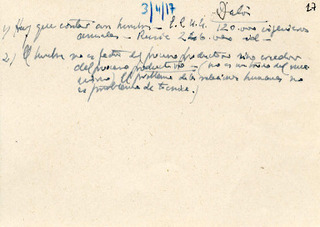 3/4/17 Dalos 27
1) Hay que contar con hombres - E.E.U.U. 120.000 ingenieros
anuales - Rusia 2
2) El hombre no es factor del proceso productivo sino creador
del proceso productivo - (no es un medio del
El problema de las relaciones humanas no
es problema de técnica.)